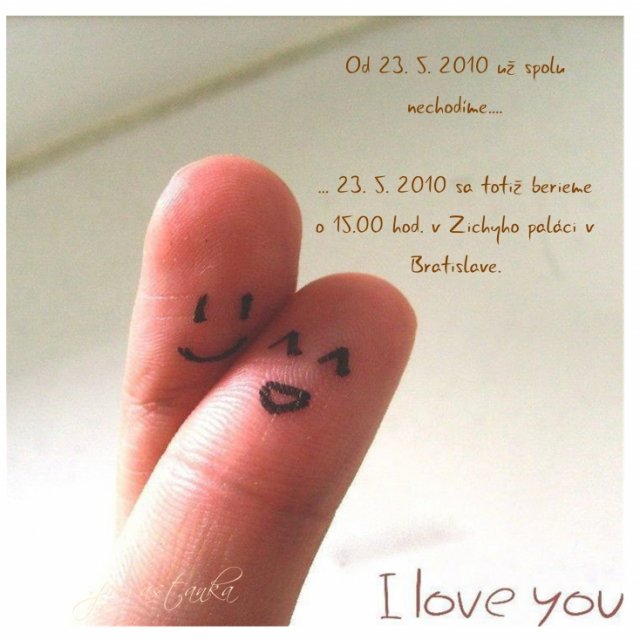 Od 23. 5. 2010 už spolu
nechodíme....
... 23. 5. 2010 sa totiž berieme
o 15.00 hod. v Zichyho paláci v
Bratislave.
I love you